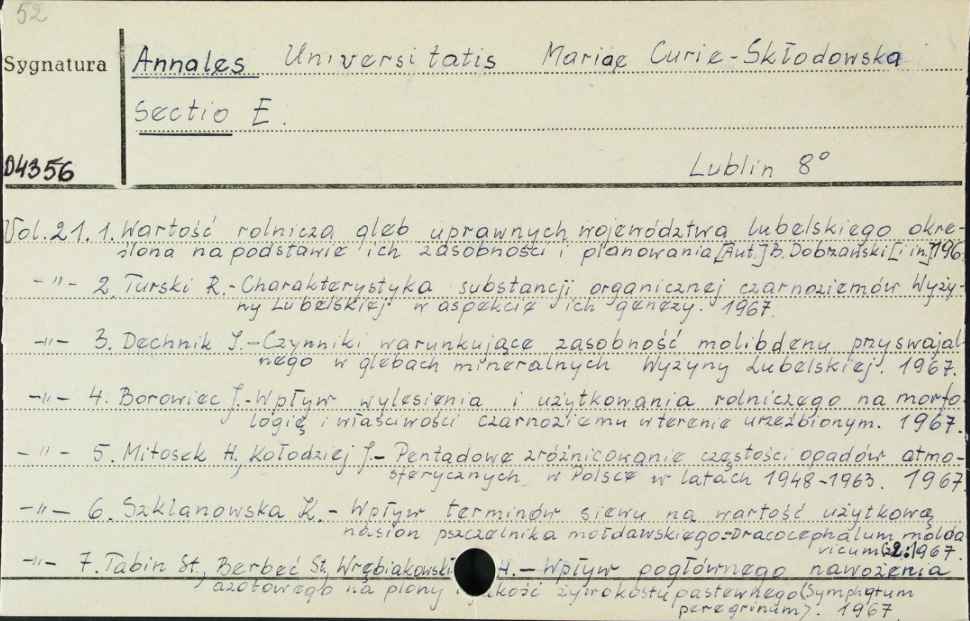 52
Sygnatura Annales Universitatis Mariae Curie-Skłodowska
Sectio E.
D4356 Lublin 8°
Vol. 21. 1. Wartość rolnicza gleb uprawnych województwa lubelskiego okre-
ślona na podstawie ich zasobności i planowania [Aut.] B. Dobrzański [i in.] 196
-"- 2. Turski R. - Charakterystyka substancji organicznej czarnoziemów Wyży-
ny Lubelskiej w aspekcie ich genezy. 1967.
-"- 3. Dechnik J. - Czynniki warunkujące zasobność molibdenu przyswajal-
nego w glebach mineralnych Wyżyny Lubelskiej. 1967.
-"- 4. Borowiec J. - Wpływ wylesienia i użytkowania rolniczego na morfo-
logię i właściwości czarnoziemu w terenie urzeźbionym. 1967.
-"- 5. Mitosek H., Kołodziej J. - Pentadowe zróżnicowanie częstości opadów atmo-
sferycznych w Polsce w latach 1948-1963. 1967
-"- 6. Szklanowska K. - Wpływ terminów siewu na wartość użytkową
nasion pszczelnika mołdawskiego - Dracocephalum molda
vicum 1967.
-"- 7. Tabin St., Berbeć St., Wrębiakowski H. - Wpływ pogłównego nawożenia
azotowego na plony i jakość żywokostu pastewnego (Symphytum
peregrinum). 1967